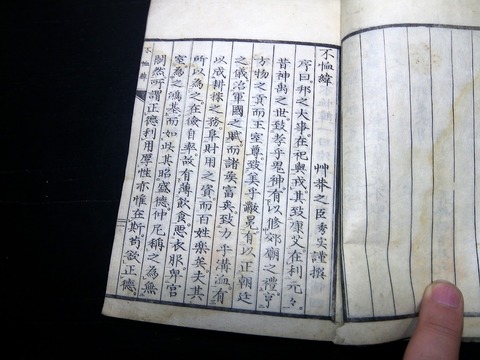 不恤緯
艸莽之臣秀実謹撰
序曰邦之大事在祀與戎其致康艾在利元々
昔神禹之世致孝乎鬼神有以修郊廟之禮享
方物之貢而王室尊致美乎黻冕有以正朝廷
之儀治軍國之賦而諸侯富矣致力乎溝洫有
以成耕採之務阜財用之資而百姓樂矣夫其
所以為之在儉自率故有薄飲食惡衣服卑宮
室為之鴻基而如此其昭盛德仲尼稱之為無
間然所謂正德利用厚性亦惟在斯苟欲正德
不恤緯